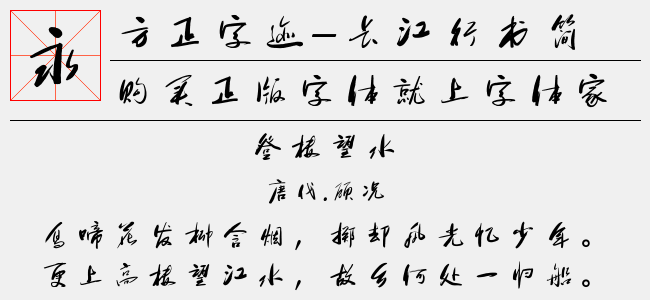 永
方正字迹—长江行书简
购买正版字体就上字体家
登楼望水
唐代.顾况
鸟啼花发柳含烟，掷却风光忆少年。
更上高楼望江水，故乡何处一归船。